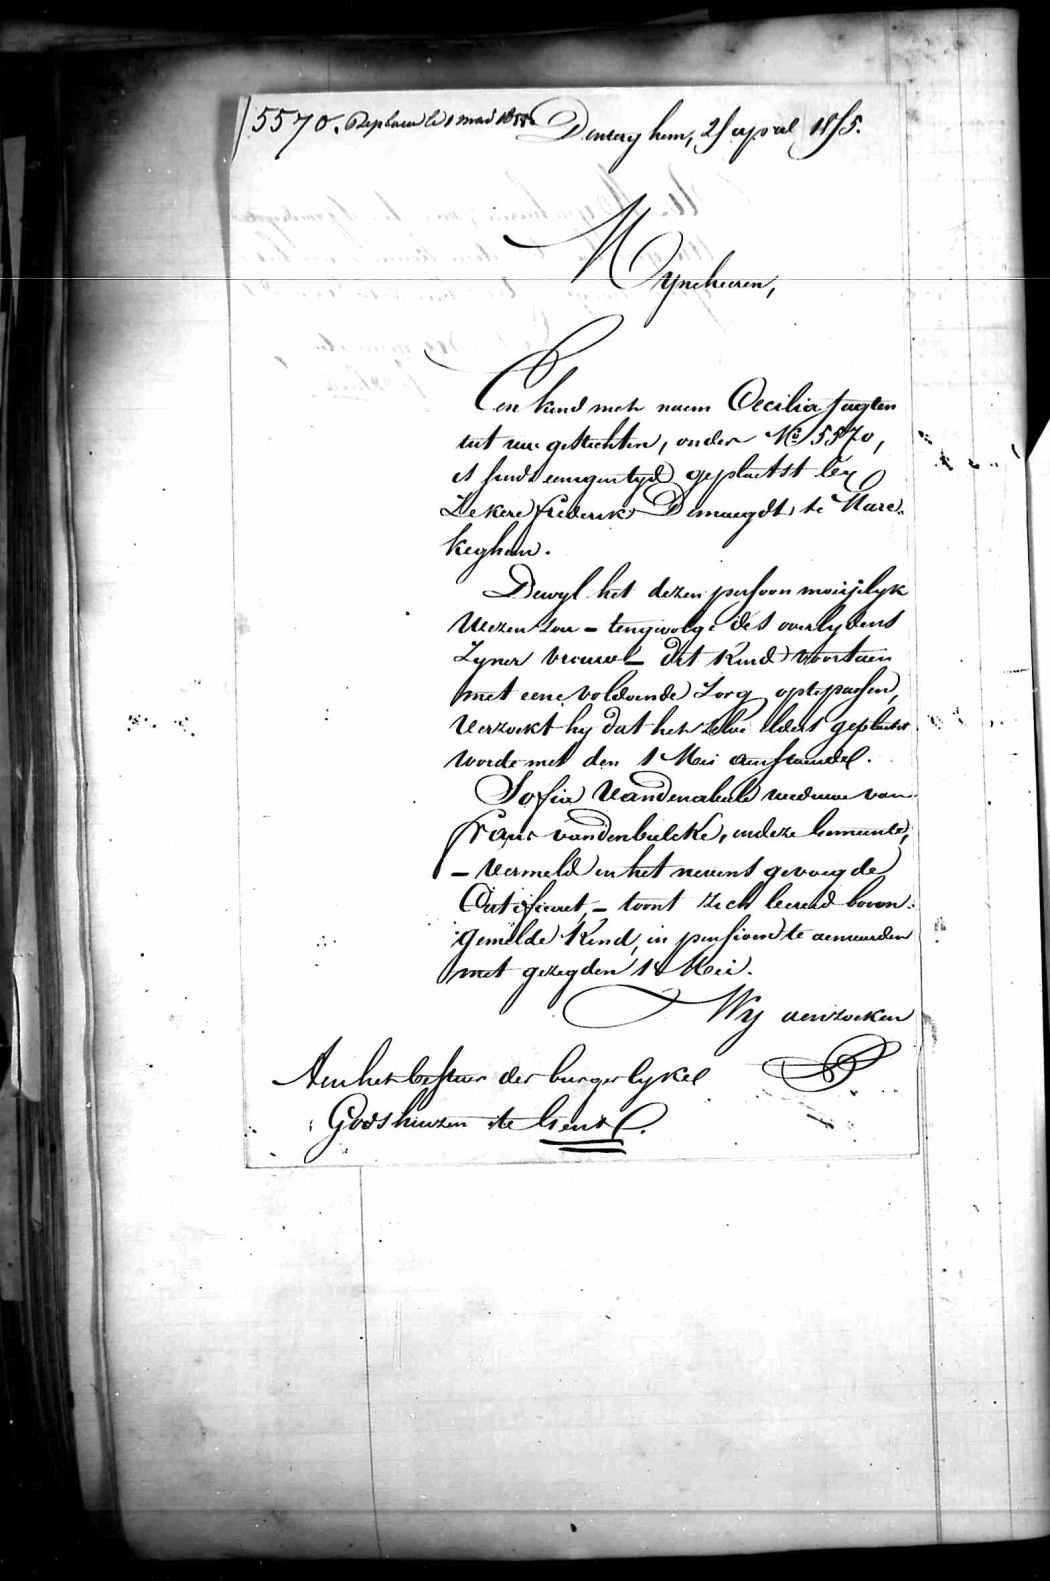 5570. Replacer le 1 mai 1855 Denterghem, 25 april 1855.
Mynheeren,
Een kind met naem Cecilia
uit uw gestichten, onder No 5570,
is sinds eenigen tyd geplaetst by
Zekere frederik Demaegdt, te Mare-
keghem.
Dewyl het dezen persoon moeijelyk
wezen zou – tengevolge des overlydens
Zyner vrouw – dit kind voortaen
met eene voldoende Zorg optepassen,
Verzoekt hy dat het zelve elders geplaetst
worde met den 1 Mei aenstaende.
Sofie Vandenabeele weduwe van
frans vandenbulcke, in deze Gemeente,
– vermeld in het nevens gevoegde
Certificaet, – toont zich bereid boven-
gemelde kind, in pensioen te aenveerden
met gezegden 1n Mei.
Wy verzoeken
Aen het bestuer der burgerlyke
Godshuizen te Gent.